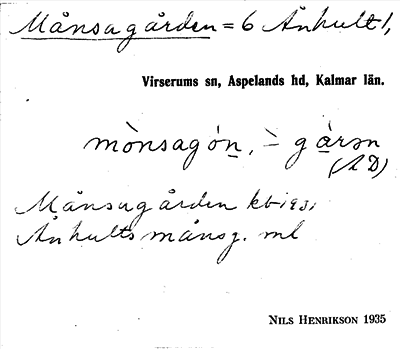 Månsagården = 6 Ånhult 1,
Virserums sn, Aspelands hd, Kalmar län.
mònsagón, - ̀ gàrən
(A D)
Månsagården kb 1931
Ånhults månsg. ml
NILS HENRIKSON 1935